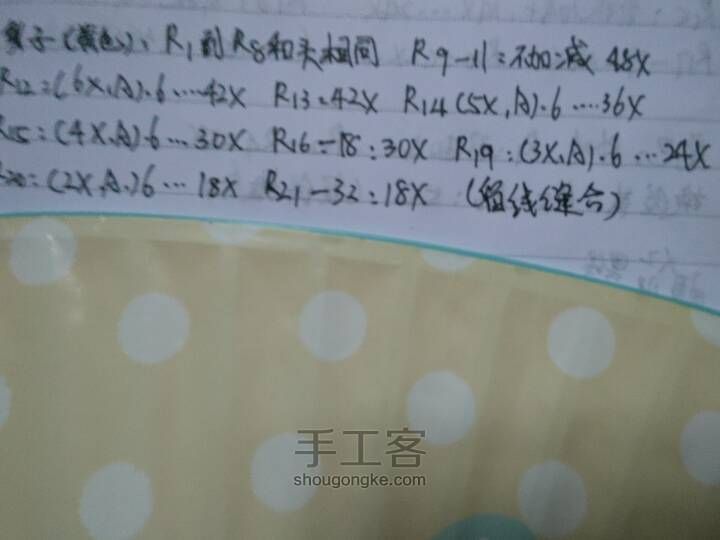 子(黄色): R1到R8和头相同 R9-11:不加减 48X
R12:(6X,A).6……42X R13:42X R14(5X,A).6……36X
R15:(4X,A).6…30X R16-18:30X R19:(3X,A).6…24X
R20:(2X,A.)6…18X R21-32:18X (留线缝合)
手工客
shougongke.com